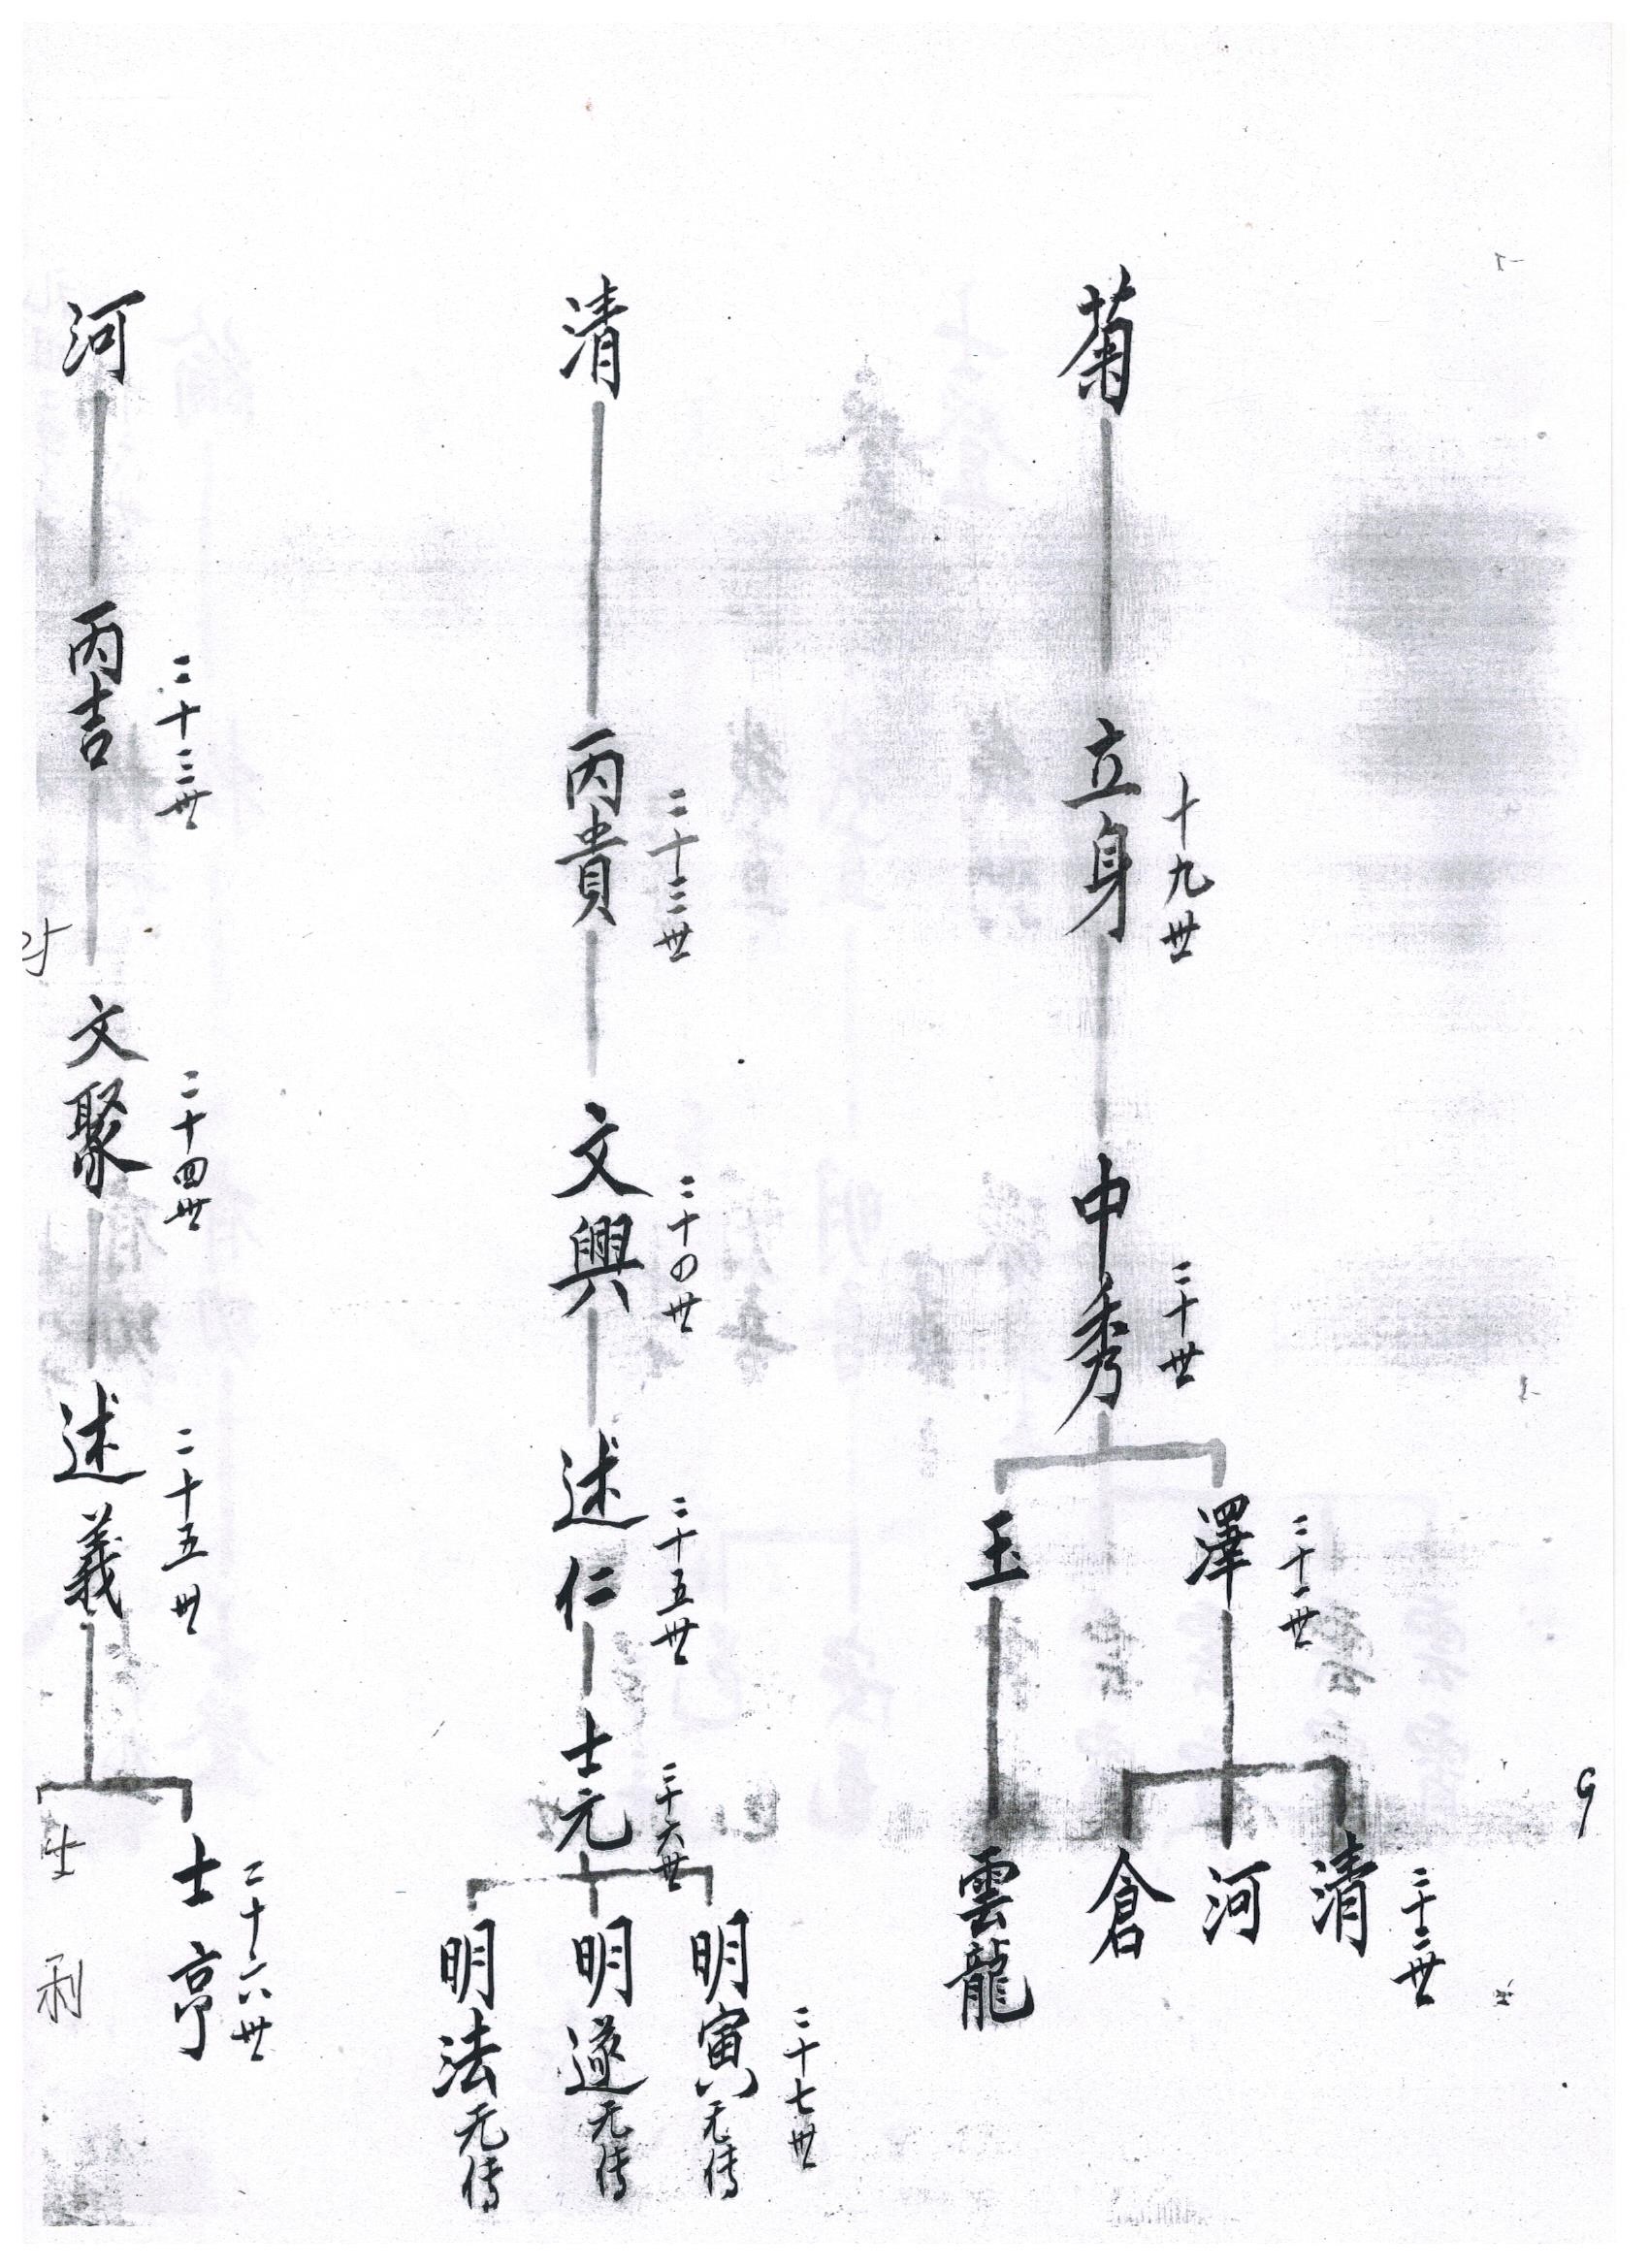 菊
立身
十九世
中秀
二十世
澤
二十一世
玉
清
二十二世
河
倉
雲龍
9
清
丙貴
二十三世
文興
二十四世
述仁
二十五世
士元
二十六世
明寅无传
二十七世
明遂无传
明法无传
河
丙吉
二十三世
文聚
二十四世
述義
二十五世
士亨
二十六世
士利